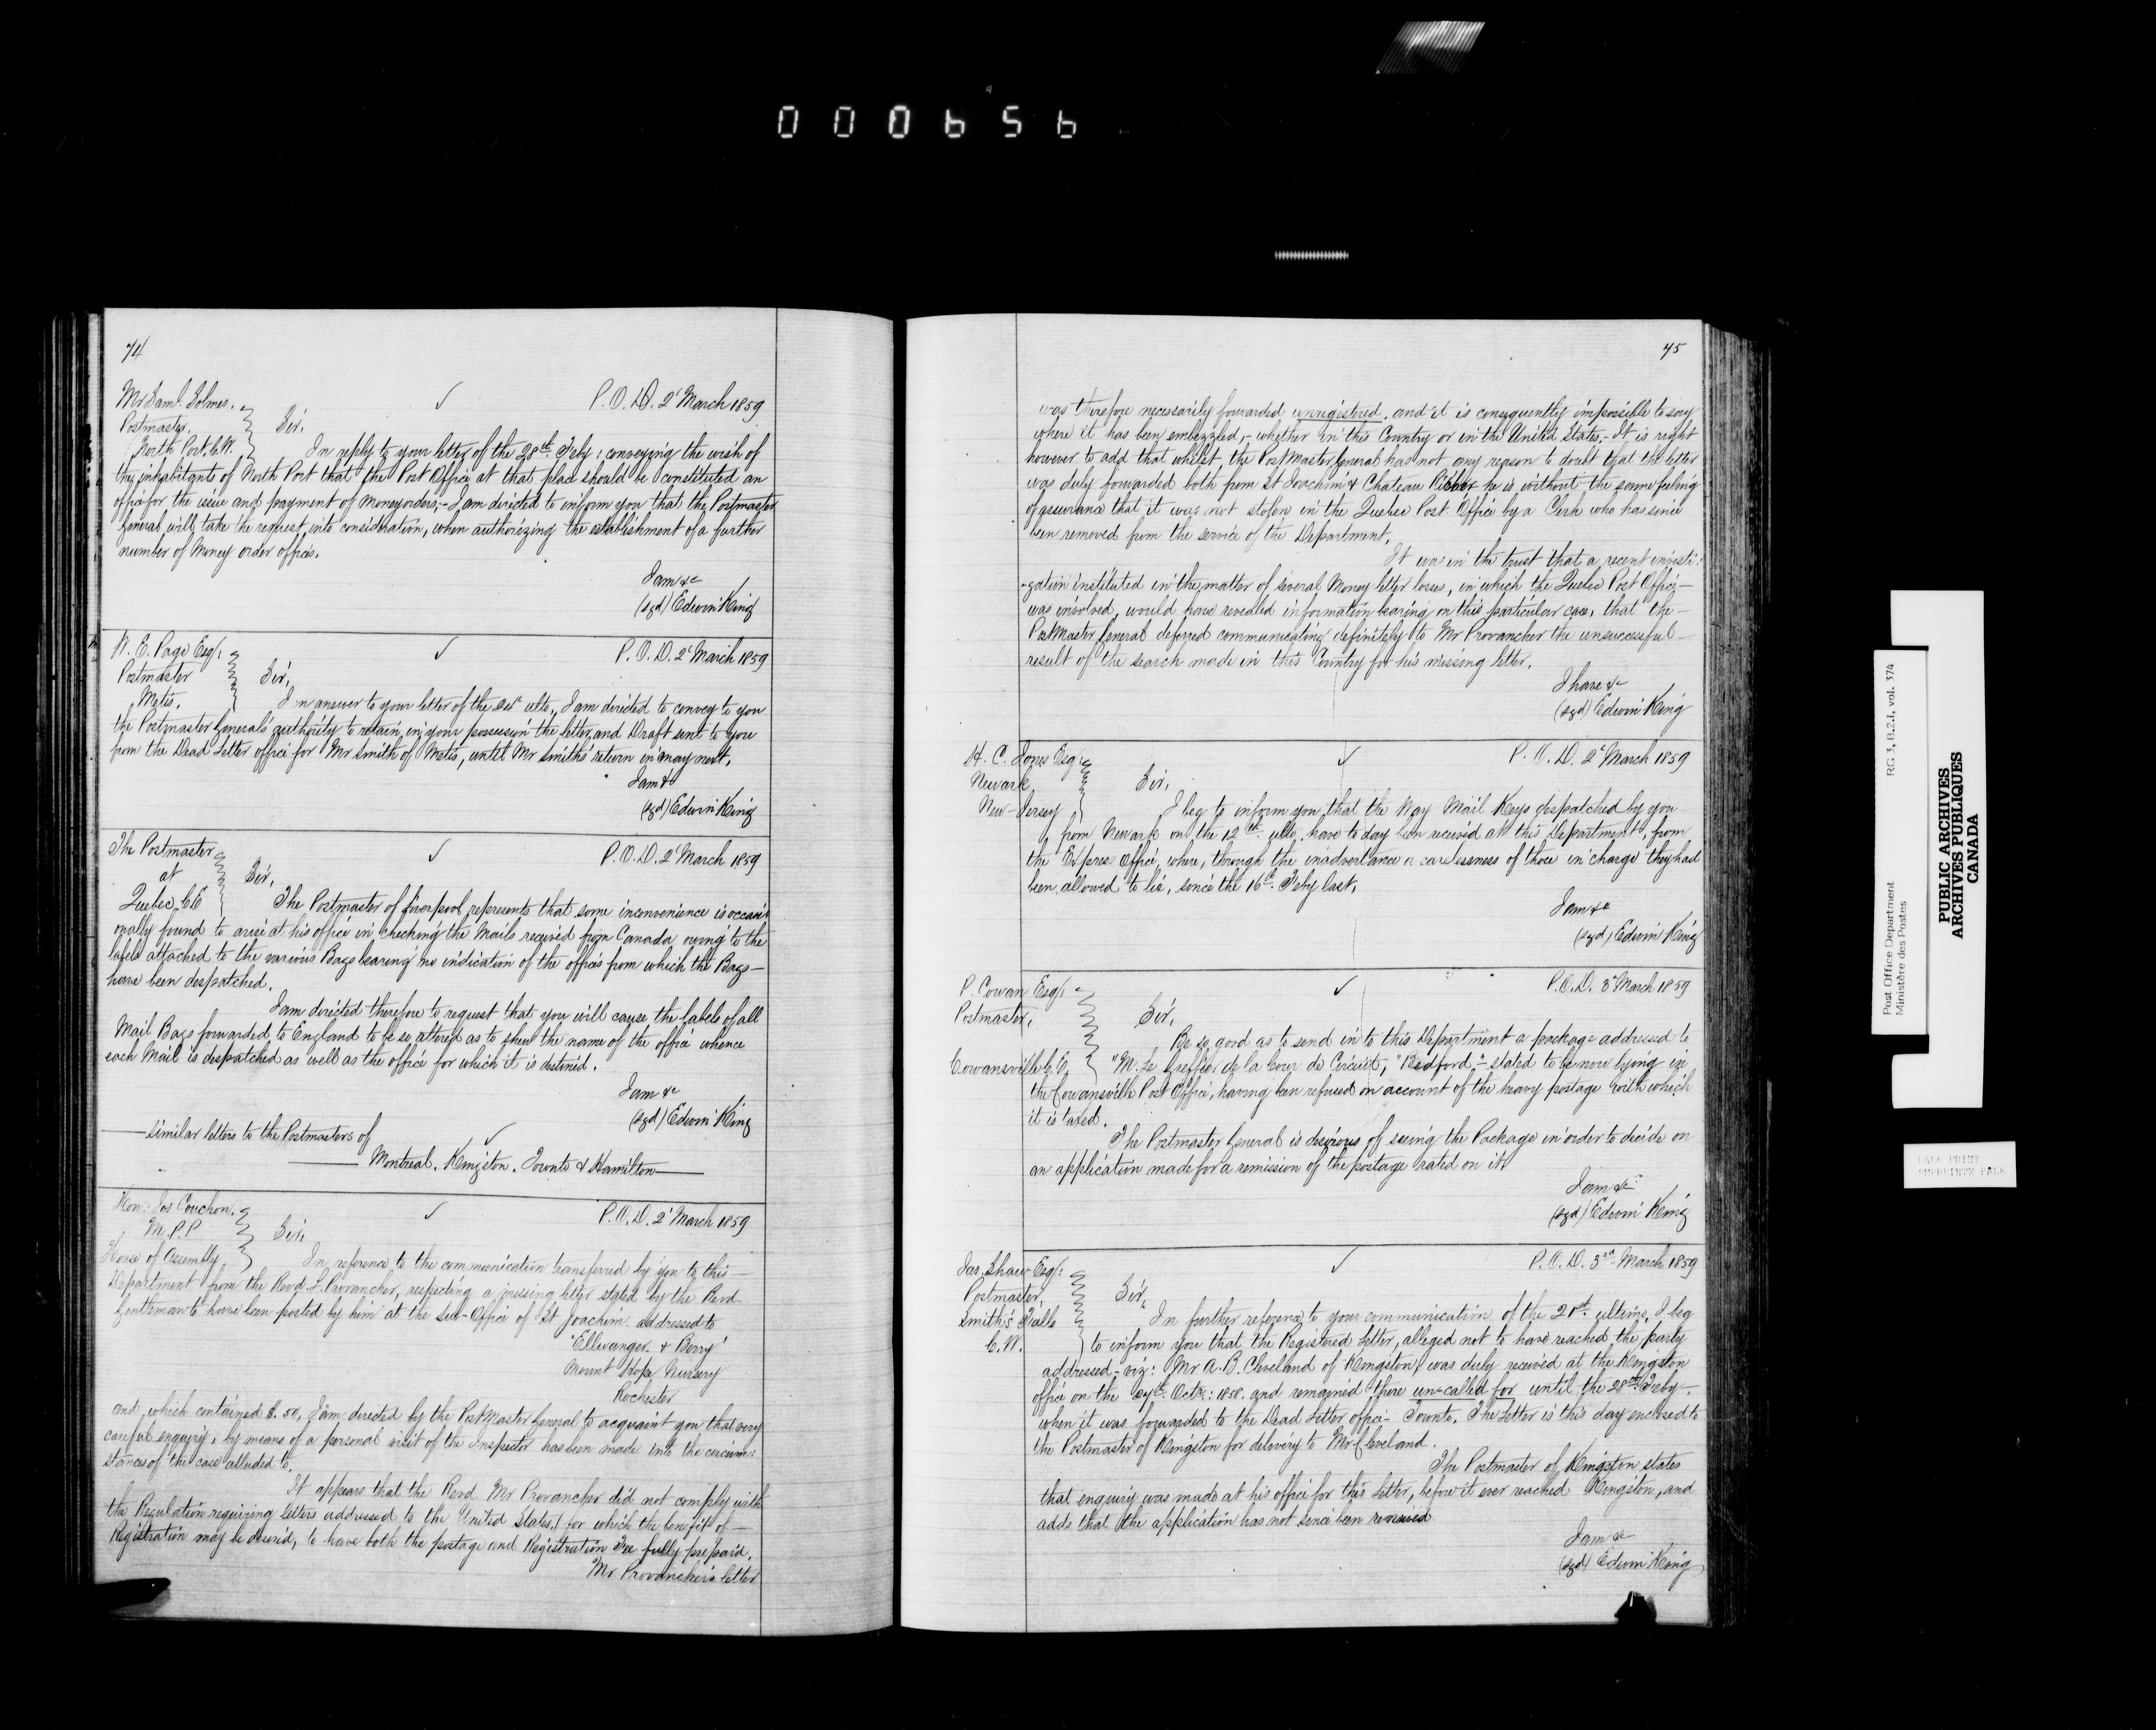 000656
74
Mr Saml. Solmes.
Postmaster.
North Port. C.W.
P.O.D. 2d March 1859
Sir,
In reply to your letter of the 28th Feby: conveying the wish of
the inhabitants of North Port that the Post Office at that place should be constituted an
office for the issue and payment of money orders,- I am directed to inform you that the Postmaster
General will take the request into consideration, when authorizing the establishment of a further
number of Money order offices.
I am &c
(sgd) Edwin King
W. E. Page Esq:
Postmaster
Metis.
P.O.D. 2d March 1859
Sir,
In answer to your letter of the ulto., I am directed to convey to you
the Postmaster General's authority to retain in your possession the letter and Draft sent to you
from the Dead Letter office for Mr Smith of Metis, until Mr Smith's return in May next.
I am &c
(sgd) Edwin King
The Postmaster
at
Quebec C.E
P.O.D. 2d March 1859
Sir,
The Postmaster of Liverpool represents that some inconvenience is occasi
onally found to arise at his office in checking the Mails received from Canada owing to the
labels attached to the various Bags bearing no indication of the offices from which the Bags-
have been despatched.
I am directed therefore to request that you will cause the labels of all
Mail Bags forwarded to England to be so altered as to shew the name of the office whence
each Mail is despatched as well as the office for which it is destined.
I am &c
(sgd) Edwin King
similar letters to the Postmasters of
Montreal. Kingston. Toronto & Hamilton
Hon: Jos Couchon.
M.P.P
House of Assembly
P.O.D. 2d March 1859
Sir,
In reference to the communication transferred by you to this-
Department from the Revd. L. Provancher, respecting a missing letter stated by the Revd-
Gentleman to have been posted by him at the Sub-Office of St Joachim. addressed to
"Ellwanger & Berry"
Mount Hope Nursery
Rochester
and which contained $.50, I am directed by the PostMaster General to acquaint you that very
careful enquiry, by means of a personal visit of the Inspector has been made into the circum:
stances of the case alluded to.
It appears that the Revd Mr Provancher did not comply with
the Regulation requiring letters addressed to the United States, for which the benefit of-
Registration may be desired, to have both the postage and Registration Fee fully prepaid.
Mr Provancher's letter
75
was therefore necessarily forwarded unregistered, and it is consequently impossible to say
where it has been embezzled,- whether in this Country or in the United States,- It is right
however to add that whilst, the PostMaster General has not any reason to doubt that the letter
was duly forwarded both from St Joachim & Chateau Richer he is without the same feeling
of assurance that it was not stolen in the Quebec Post Office by a Clerk who has since
been removed from the service of the Department.
It was in the trust that a recent investi:
-gation instituted in the matter of several Money letter losses, in which the Quebec Post Office-
was involved, would have revealed information bearing on this particular case, that the-
PostMaster General deferred communicating definitely to Mr Provancher the unsuccessful-
result of the search made in this Country for his missing letter.
I have &c
(sgd) Edwin King
H. C. Jones Esq:
Newark
New-Jersey
P.O.D. 2d March 1859
Sir,
I beg to inform you that the Way Mail Keys despatched by you
from Newark on the 12th ulto. have to day been received at this Department, from
the Express Office, where, through the inadvertance or carelessness of those in charge they had
been allowed to lie, since the 16th Feby last,
I am &c
(sgd) Edwin King
P. Cowan Esq:
Postmaster,
Cowansville C.E.
P.O.D. 3d March 1859
Sir,
Be so good as to send in to this Department a package addressed to
"M. Le Greffier de la Cour de Circuit, "Bedford"- stated to be now lying in
the Cowansville Post Office, having been refused on account of the heavy postage with which
it is taxed.
The Postmaster General is desirous of seeing the Package in order to decide on
an application made for a remission of the postage rated on it.
I am &c
(sgd) Edwin King
Jas. Shaw Esq:
Postmaster,
Smith's Falls
C.W.
P.O.D. 3rd March 1859
Sir,
In further reference to your communication of the 21st. ultimo, I beg
to inform you that the Registered Letter, alleged not to have reached the party
addressed- viz: Mr A. B. Cleveland of Kingston, was duly received at the Kingston
office on the Octr: 1858. and remained there un-called for until the 28th Feby-.
when it was forwarded to the Dead Letter office- Toronto. The Letter is this day enclosed to
the Postmaster of Kingston for delivery to Mr Cleveland.
The Postmaster of Kingston states
that enquiry was made at his office for this Letter, before it ever reached Kingston, and
adds that the application has not since been renewed
I am &c
(sgd) Edwin King
Post Office Department RG 3, B.2.I, vol. 374
Ministère des Postes
PUBLIC ARCHIVES
ARCHIVES PUBLIQUES
CANADA